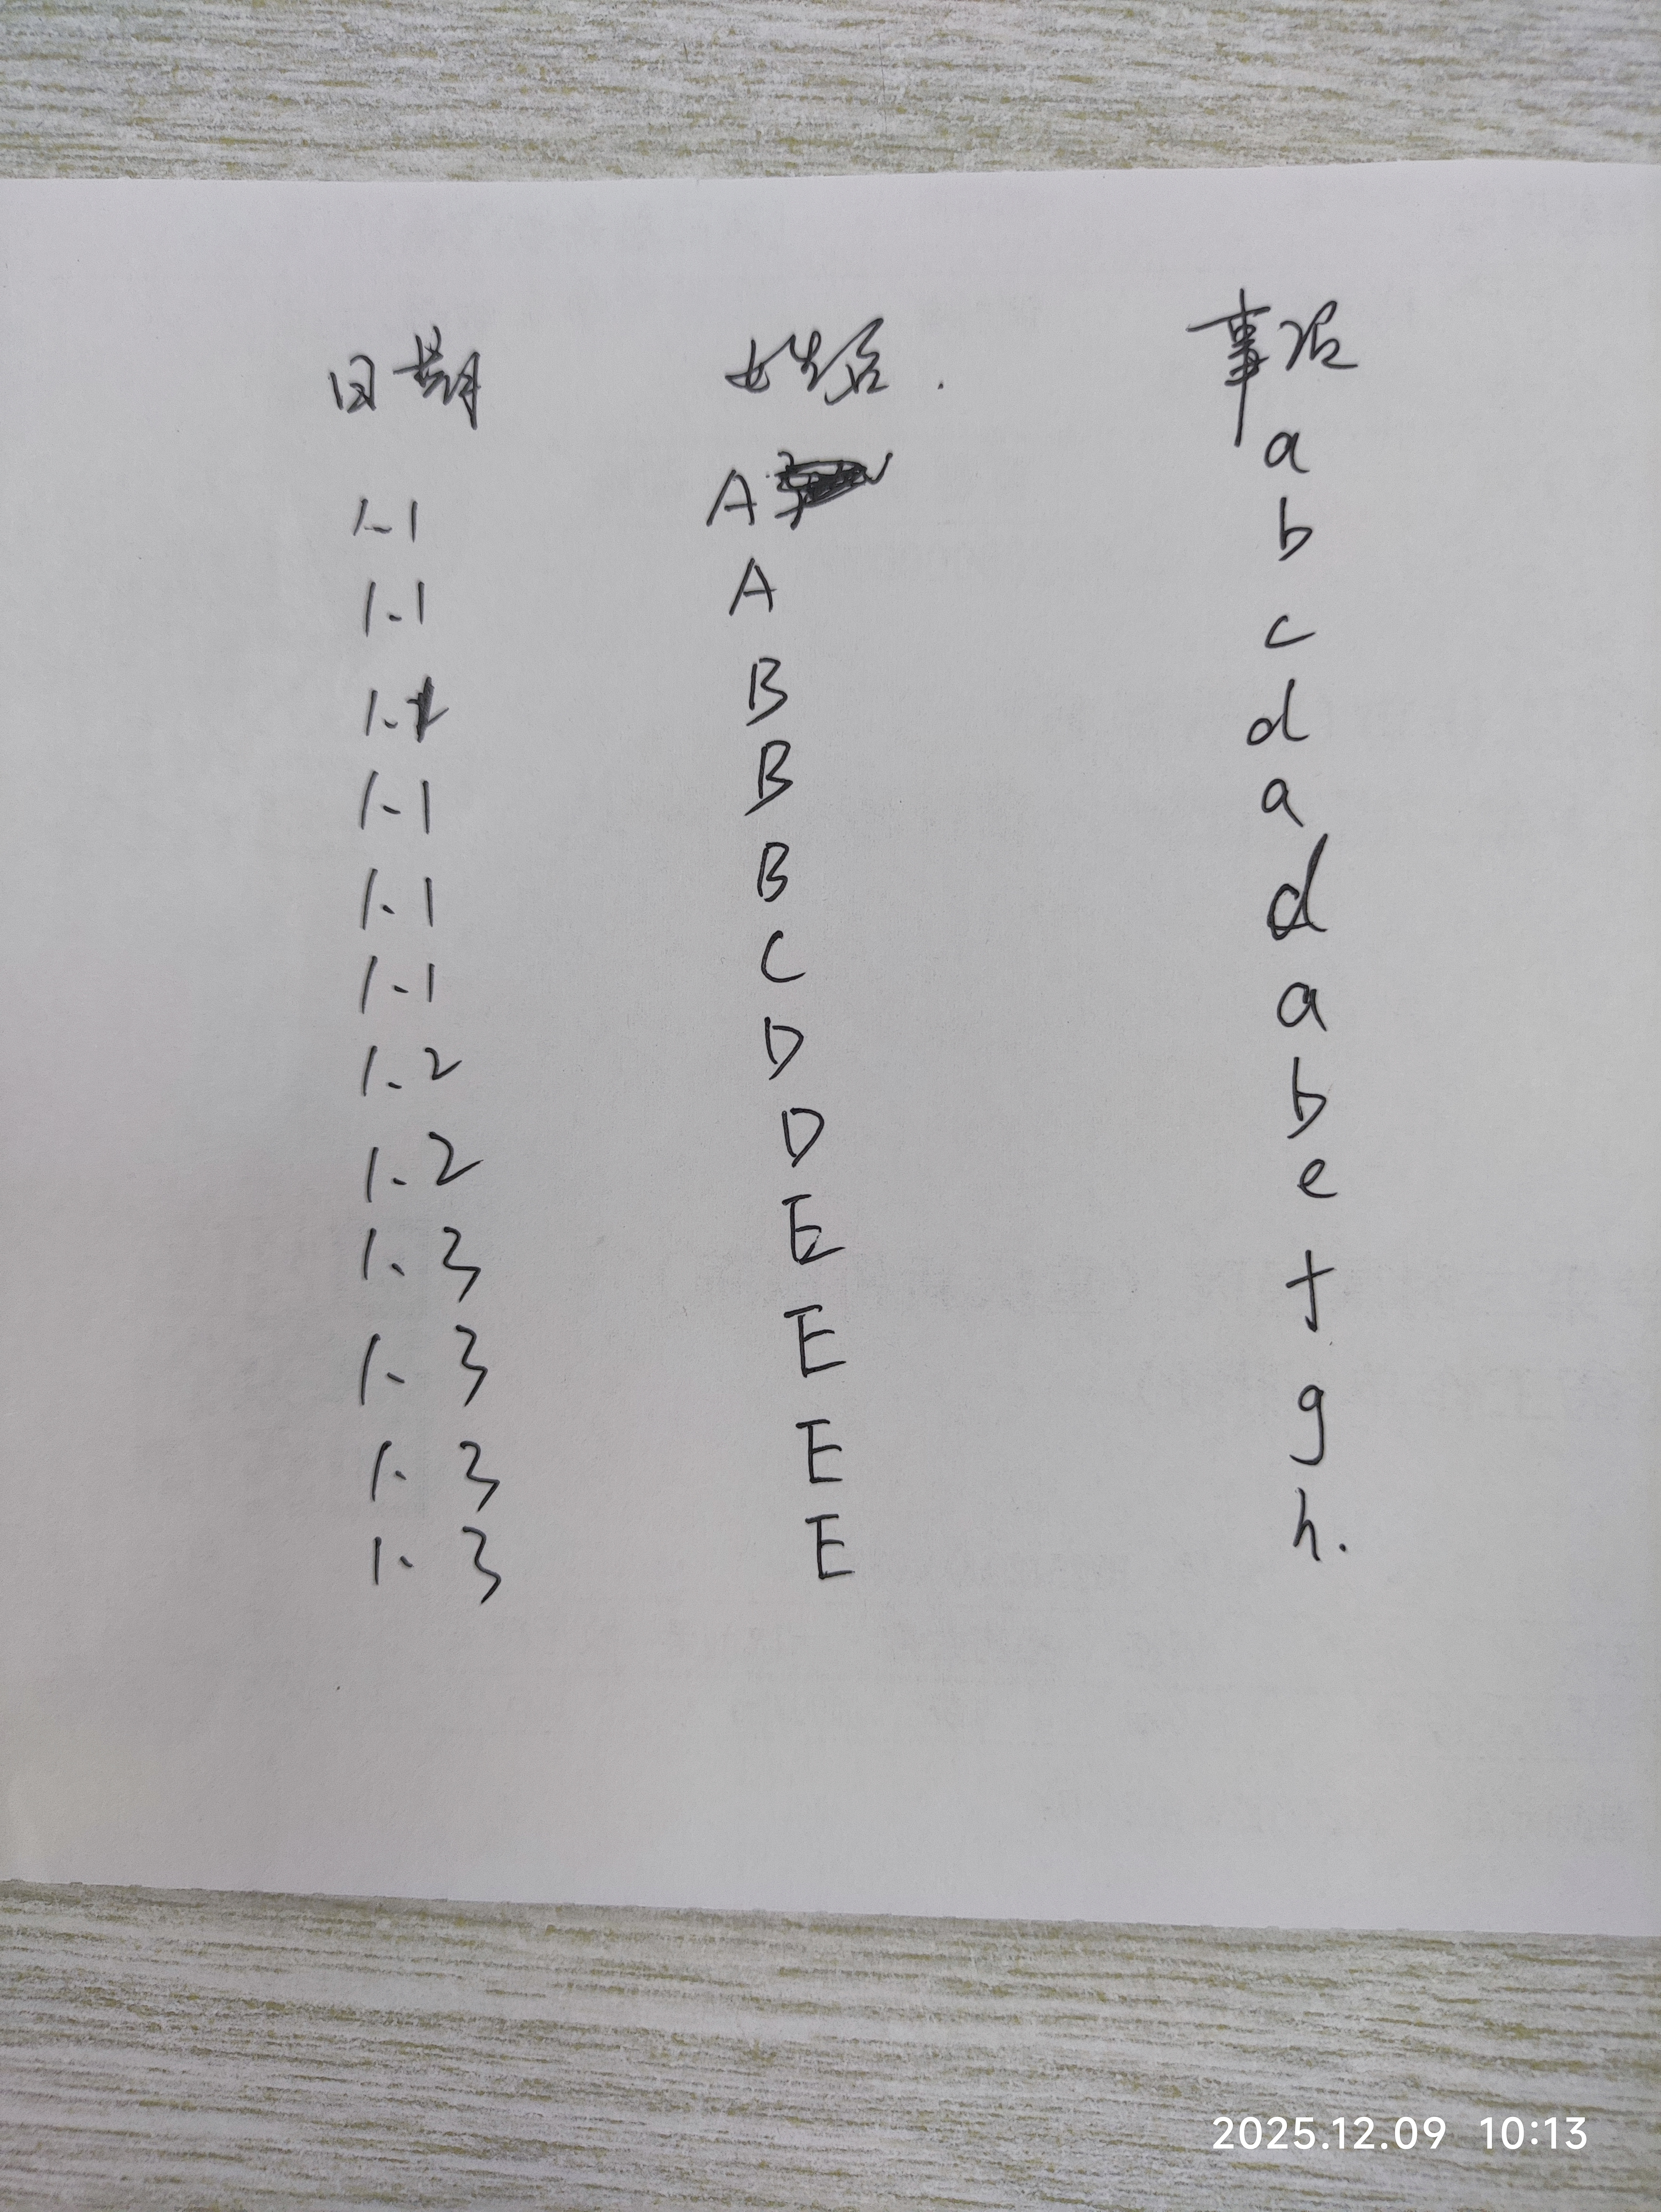 日期 姓名. 事项
1.1 A a
1.1 A b
1.1 B c
1.1 B d
1.1 B a
1.1 C d
1.2 D a
1.2 D b
1.3 E e
1.3 E f
1.3 E g
1.3 E h.
2025.12.09 10:13